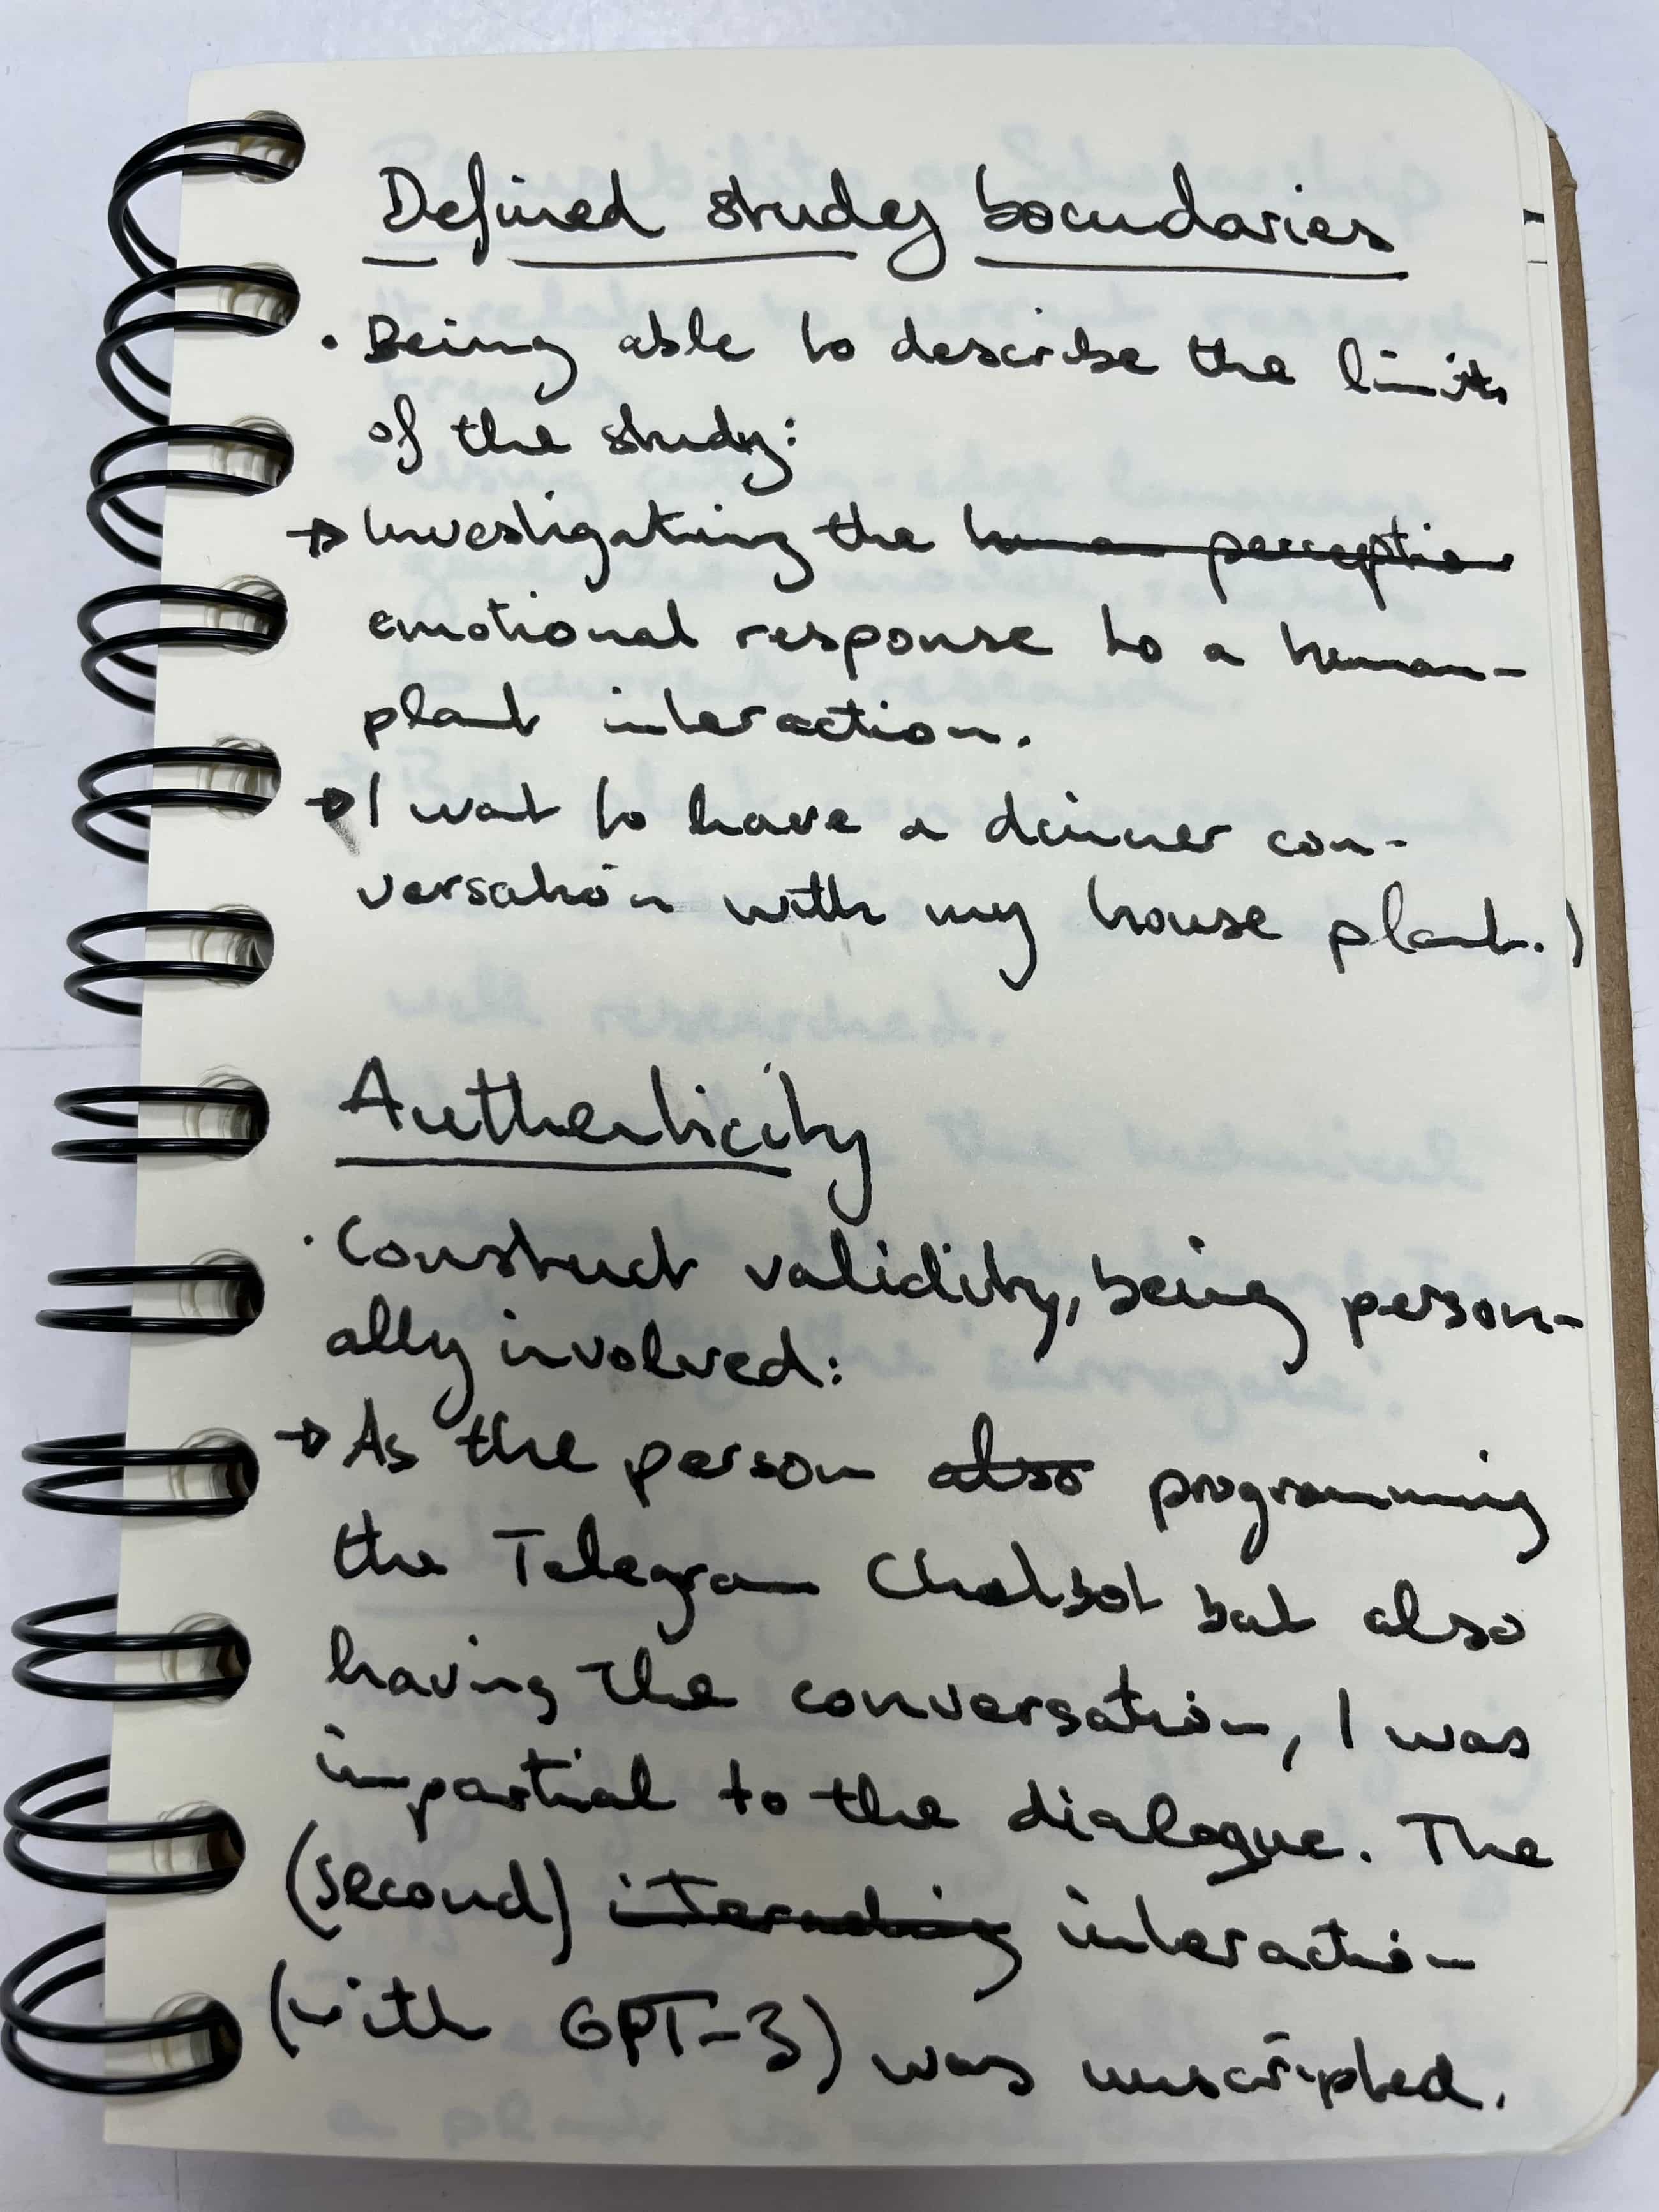 Defined study boundaries
· Being able to describe the limits
of the study:
→ Investigating the human perception
emotional response to a human-
plant interaction.
→ I want to have a dinner con-
versation with my house plant.)
Authenticity
· Construct validity, being person-
ally involved:
→ As the person also programming
the Telegram Chatbot but also
having the conversation, I was
impartial to the dialogue. The
(second) interacting interaction
(with GPT-3) was unscripted.